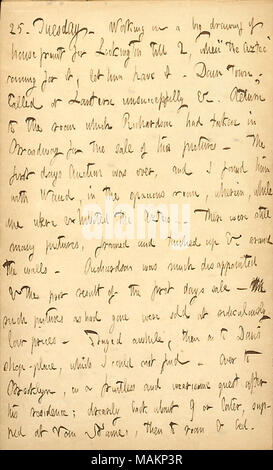 25. Tuesday. Working on a big drawing of
house front for Lockington till 2, when "the Aztec"
coming for it, let him have it. Down town,
Called at Lantern unsuccessfully &c. Return
to the room which Richardson had taken in
Broadway for the sale of his pictures. The
first days Auction was over, and I found him
with Waud, in the spacious room, wherein, while
one were exhibited the. There were still
many pictures, framed and tacked up & around
the walls. Richardson was much disappointed
& the poor result of the first days sale. The
such pictures as had gone were sold at ridiculously
low prices. Stayed awhile; then as to Davis
shop-place, which I could not find. Over to
Brooklyn, on a fruitless and wearisome quest after
his residence; drearily back about 9 or later, sup-
ped at; then to room & bed.
alamy
Image ID: MAKP3R
www.alamy.com